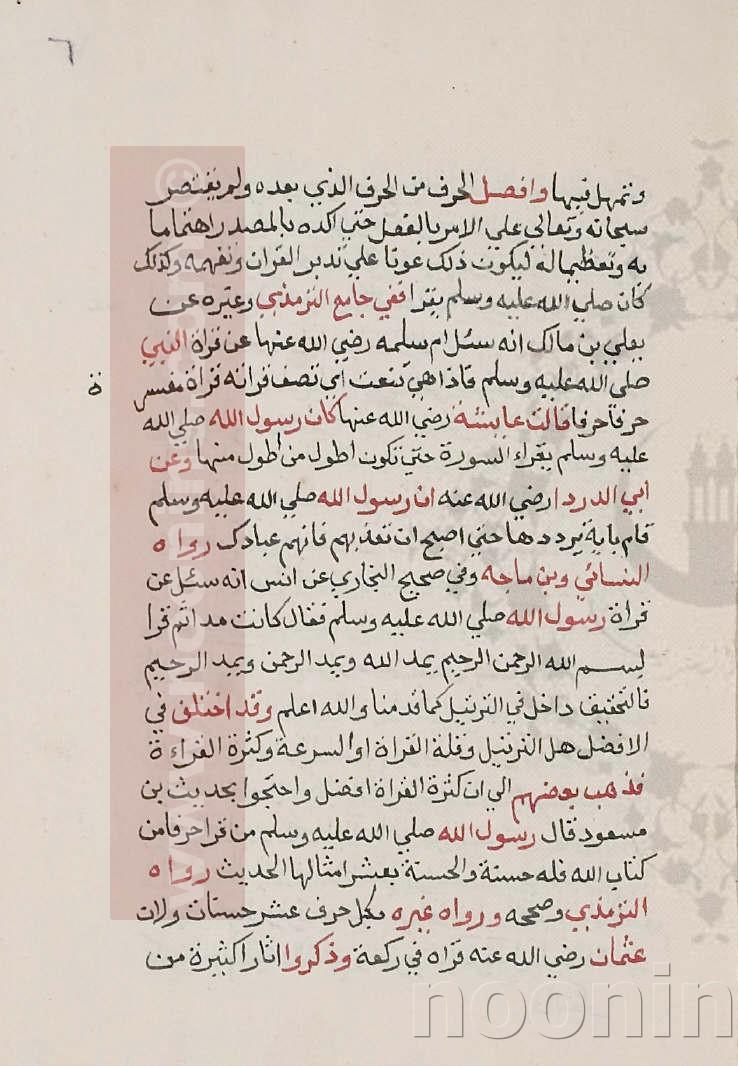 ٦
وتمهل فيها وافصل الحرف من الحرف الذي بعده ولم يقتصر
سبحانه وتعالى علي الامر بالفعل حتي اكده بالمصدر اهتماما
به وتعظيما له ليكون ذلك عونا علي تدبر القران وتفهمه وكذلك
كان صلي الله عليه وسلم يقرا ففي جامع الترمذي وغيره عن
يعلي بن مالك انه سئل ام سلمه رضي الله عنها عن قراة النبي
صلي الله عليه وسلم فاذا هي تنعت اي تصف قرانه قراة مفسر
ة
حرفا حرفا قالت عايشة رضي الله عنها كان رسول الله صلي الله
عليه وسلم يقراء السورة حتي تكون اطول من اطول منها وعن
ابي الدردا رضي الله عنه ان رسول الله صلي الله عليه وسلم
قام باية يرددها حتي اصبح ان تعذبهم فانهم عبادك رواه
النسائي وبن ماجه وفي صحيح البخاري عن انس انه سئل عن
قراة رسول الله صلي الله عليه وسلم فقال كانت مدا ثم قرا
بسم الله الرحمن الرحيم يمد الله ويمد الرحمن ويمد الرحيم
فالتحقيق داخل في الترتيل كما قدمنا والله اعلم وقد اختلف في
الافضل هل الترتيل وقلة القراة او السرعة وكثرة القراءة
فذهب بعضهم الي ان كثرة القراة افضل واحتجوا بحديث بن
مسعود قال رسول الله صلي الله عليه وسلم من قرا حرفا من
كتاب الله فله حسنة والحسنة بعشر امثالها الحديث رواه
الترمذي وصححه ورواه غيره بكل حرف عشر حسنات ولان
عثمان رضي الله عنه قراه في ركعة وذكروا اثارا كثيرة من
noonin